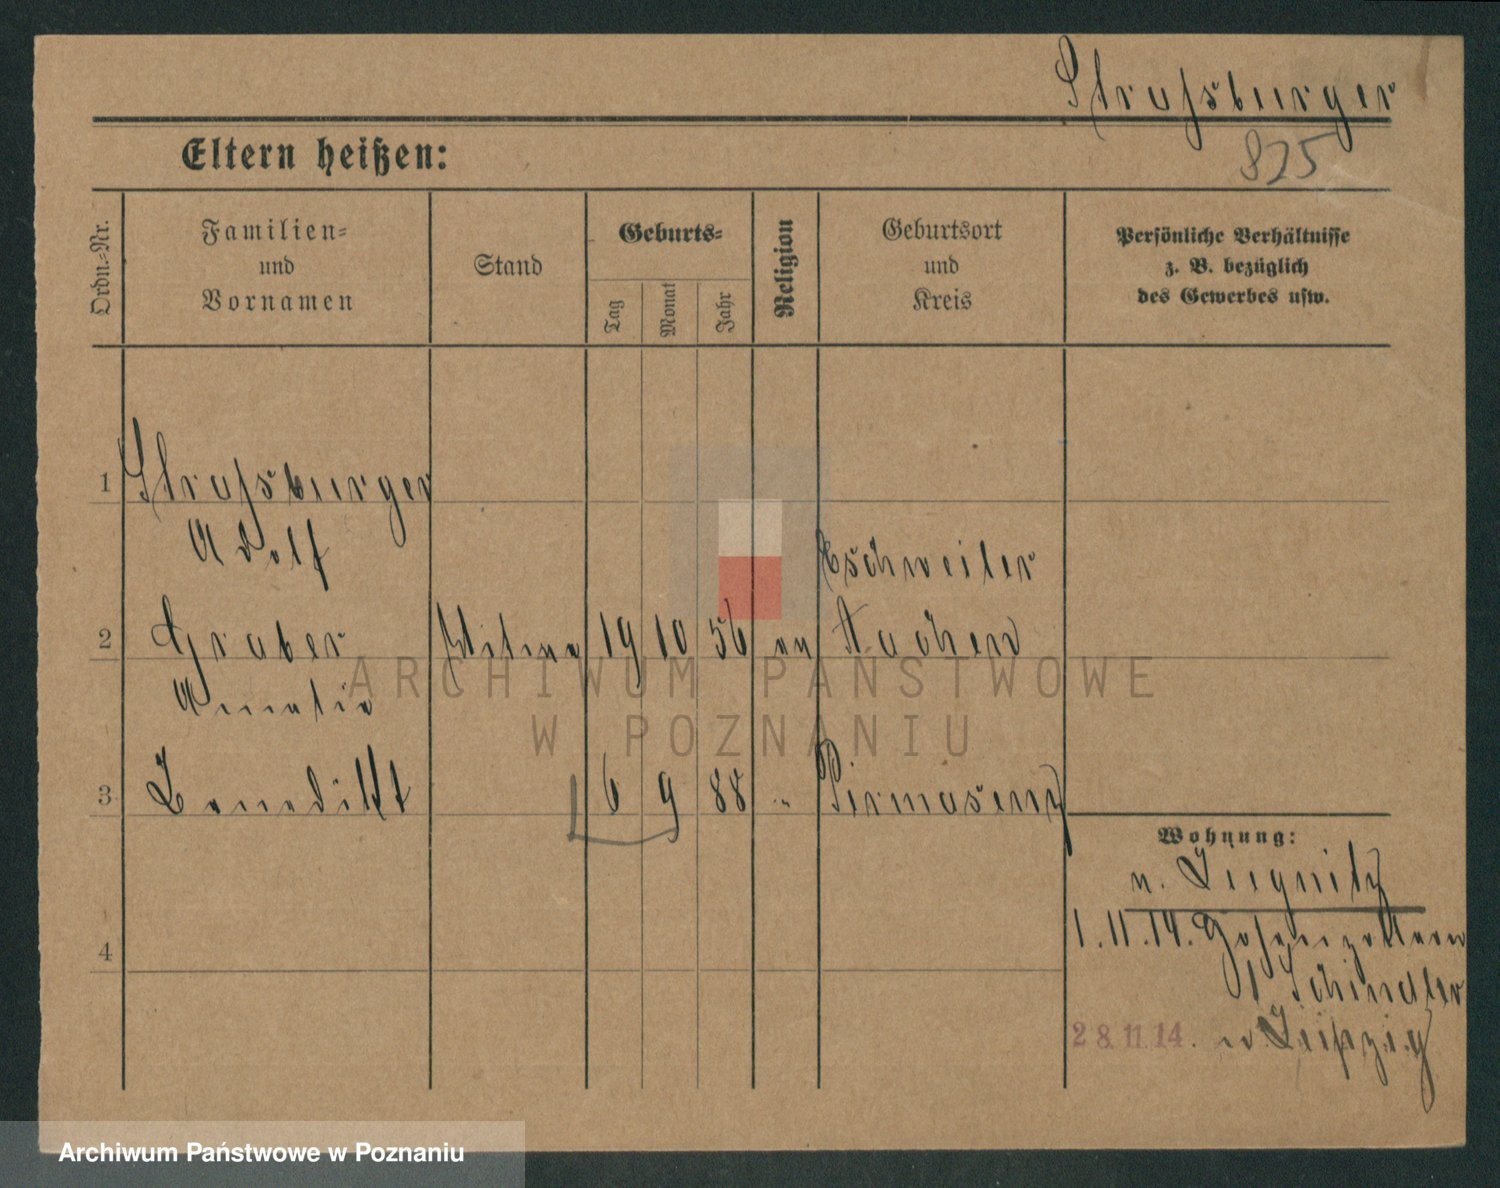 Straßburger
Eltern heißen:
825
Ordn.-Nr.
Familien-
und
Vornamen
Stand
Geburts-
Tag
Monat
Jahr
Religion
Geburtsort
und
Kreis
Persönliche Verhältnisse
z. B. bezüglich
des Gewerbes usw.
1
Straßburger
Adolf
Eschweiler
2
Graber
19 10 56
Aachen
Amalie
3
Benedikt
6 9 88 "
Pirmasens
Wohnung:
n. Liegnitz
4
1.11.14.
Schindler
28.11.14. n. Leipzig
ARCHIWUM PAŃSTWOWE
W POZNANIU
Archiwum Państwowe w Poznaniu